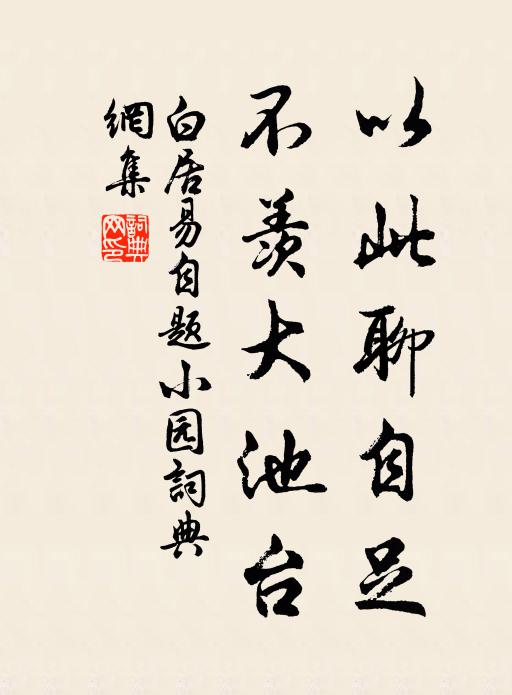 以此聊自足
不羡大池台
白居易自题小园詞典
網集
詞典網印